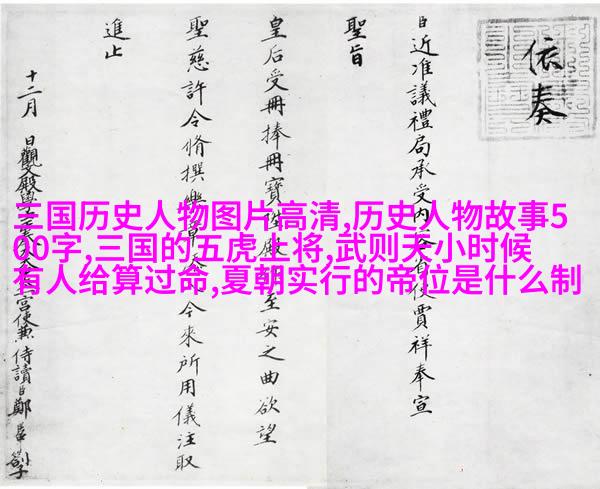 依奏
臣近准議禮局承受內自使賈祥奉宣
聖旨
皇后受冊捧冊寶陞殿至安之曲欲望
聖慈許令脩撰樂章今來所用儀注取
進止
十二月 日觀文殿學宮使兼侍讀臣鄭
三国历史人物图片高清,历史人物故事5
00字,三国的五虎上将,武则天小时候
有人给算过命,夏朝实行的帝位是什么制